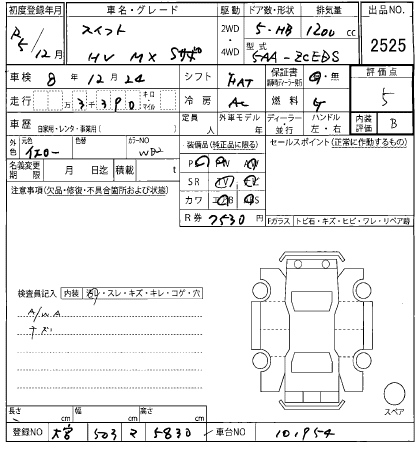 初度登録年月 車名・グレード 駆動 ドア数・形状 排気量 出品NO.
R5/12月 スイフト 2WD・4WD 5・HB 1200cc 2525
HV MX 型式 5AA-ZCEDS
車検 8年12月24 シフト FAT 保証書 有・無 評価点
走行 万3千390 キロ マイル 冷房 AC 燃料 G 5
車歴 自家用・レンタ・事業用( ) 定員 人 外車モデル 年 ディーラー・並行 ハンドル 左・右 内装評価 B
外色 元色 イエロー 色替 カラーNO 装備品(純正品に限る) セールスポイント(正常に作動するもの)
名義変更期限 月 日迄 積載 t PS PW
注意事項(欠品・修復・不具合箇所および状態) SR TV
カワ エアB
R券 7530円 Fガラス トビ石・キズ・ヒビ・ワレ・リペア跡
検査員記入 内装 汚レ・スレ・キズ・キレ・コゲ・穴
A/WA
キズ
スペア
長さ cm 幅 cm 高さ cm
登録NO 大宮 503 マ 5830 車台NO 101954